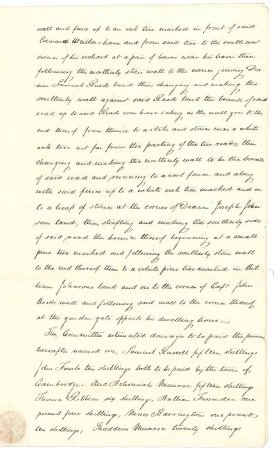 wall and fence up to an oak tree marked in front of said
Edward Walkers house and from said tree to the southwest
corner of his orchard at a pair of barrs near his barn then
following the northerly stone wall to the corner joining Dea
con Samuel Reeds land then changing and making the
southerly wall against said Reeds land the bounds of said
road up to said Reeds corn barn along as the wall goes to the
end thereof from thence to a stake and stones near a white
oak tree not far from the parting of the two roads, then
changing and making the northerly wall to be the bounds
of said road and running to a rail fence and along
with said fence up to a white oak tree marked and on
to a heap of stones at the corner of Deacon Joseph John
sons land, then shifting and making the southerly side
of said road the bounds thereof beginning at a small
pine tree marked and following the southerly stone wall
to the end thereof then to a white pine tree marked in
Johnsons land and on to the corner of Capt John
Reeds wall and following said wall to the corner thereof
at the garden gate opposite his dwelling house.
The Committee estimated damage to be paid the persons
hereafter named viz, Samuel Russell fifteen shillings
John Fowle ten shillings both to be paid by the town of
Cambridge. And Nehemiah Munroe fifteen shillings
Thomas Robbins six shillings, Nathan Fessenden one
pound four shillings, Moses Harrington one pound
ten shillings, Thaddeus Munroe twenty shillings